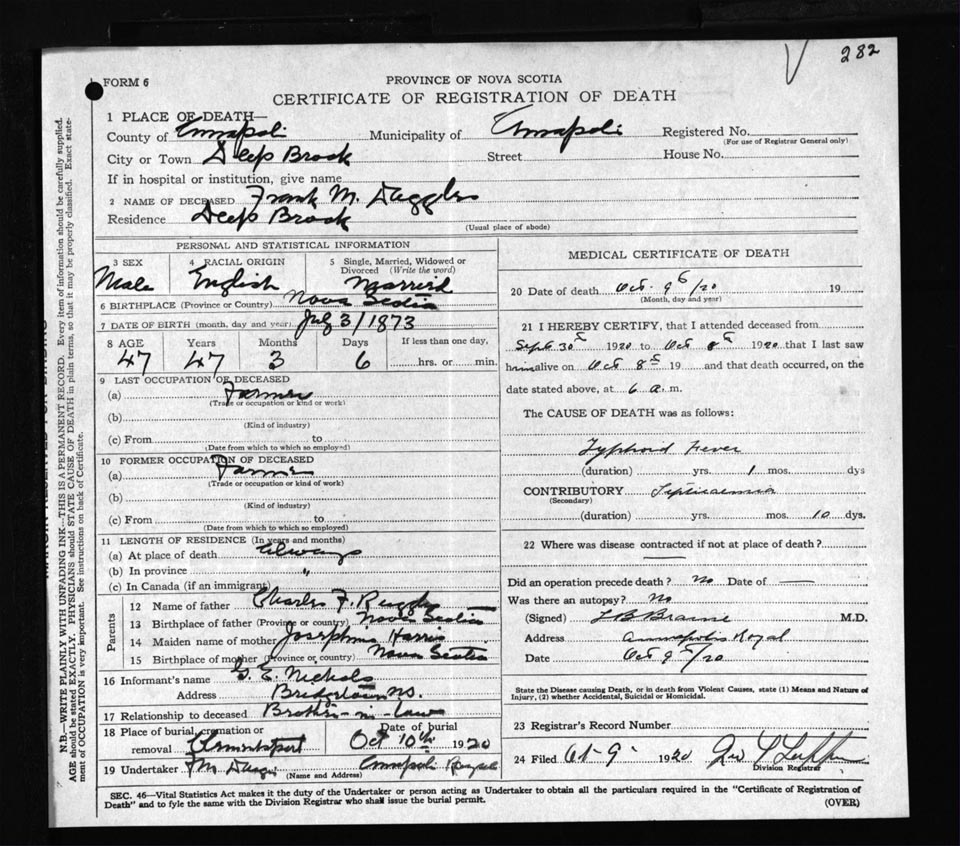 282
FORM 6
PROVINCE OF NOVA SCOTIA
CERTIFICATE OF REGISTRATION OF DEATH
1 PLACE OF DEATH—
County of Annapoli Municipality of Annapoli Registered No.
(For use of Registrar General only)
City or Town Deep Brook Street House No.
If in hospital or institution, give name
2 NAME OF DECEASED Frank M.
Residence Deep Brook
(Usual place of abode)
PERSONAL AND STATISTICAL INFORMATION
3 SEX 4 RACIAL ORIGIN 5 Single, Married, Widowed or Divorced (Write the word)
Male English Married
6 BIRTHPLACE (Province or Country) Nova Scotia
7 DATE OF BIRTH (month, day and year) July 3/1873
8 AGE Years Months Days If less than one day,
47 47 3 6 hrs. or min.
9 LAST OCCUPATION OF DECEASED
(a) Farmer
(Trade or occupation or kind or work)
(b)
(Kind of industry)
(c) From to
(Date from which to which so employed)
10 FORMER OCCUPATION OF DECEASED
(a) Farmer
(Trade or occupation or kind of work)
(b)
(Kind of industry)
(c) From to
(Date from which to which so employed)
11 LENGTH OF RESIDENCE (In years and months)
(a) At place of death Always
(b) In province "
(c) In Canada (if an immigrant)
Parents
12 Name of father Charles F.
13 Birthplace of father (Province or country) Nova Scotia
14 Maiden name of mother Josephine Harris
15 Birthplace of mother (Province or country) Nova Scotia
16 Informant's name E. Nichols
Address Bridgetown NS.
17 Relationship to deceased Brother-in-law
18 Place of burial, cremation or removal Date of burial
Oct 10th 1920
19 Undertaker F M Annapoli Royal
(Name and Address)
MEDICAL CERTIFICATE OF DEATH
20 Date of death Oct. 9th/20 19
(Month, day and year)
21 I HEREBY CERTIFY, that I attended deceased from
Sept 30th 1920 to Oct 8th 1920 that I last saw
him alive on Oct 8th 19 and that death occurred, on the
date stated above, at 6 a.m.
The CAUSE OF DEATH was as follows:
Typhoid Fever
(duration) yrs. 1 mos. dys
CONTRIBUTORY Septicaemia
(Secondary)
(duration) yrs. mos. 10 dys.
22 Where was disease contracted if not at place of death?
Did an operation precede death? No Date of —
Was there an autopsy? No
(Signed) L B Braine M.D.
Address Annapolis Royal
Date Oct 9th/20
State the Disease causing Death, or in death from Violent Causes, state (1) Means and Nature of
Injury, (2) whether Accidental, Suicidal or Homicidal.
23 Registrar's Record Number
24 Filed Oct-9- 1920
Division Registrar
SEC. 46—Vital Statistics Act makes it the duty of the Undertaker or person acting as Undertaker to obtain all the particulars required in the "Certificate of Registration of
Death" and to fyle the same with the Division Registrar who shall issue the burial permit.
(OVER)
N.B.—WRITE PLAINLY WITH UNFADING INK—THIS IS A PERMANENT RECORD. Every item of information should be carefully supplied.
AGE should be stated EXACTLY. PHYSICIANS should STATE CAUSE OF DEATH in plain terms, so that it may be properly classified. Exact state-
ment of OCCUPATION is very important. See instructions on back of Certificate.